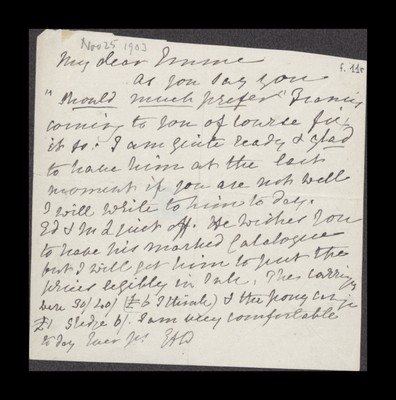 Nov 25 1903
f. 11r
My dear Emma
As you say you
"should much prefer" Francis
coming to you of course fix
it so: I am quite ready & glad
to have him at the last
moment if you are not well
I will write to him to day.
Ed & M d just off. He wishes you
to have his marked Catalogue
but I will get him to put the
prices legibly in Ink. The carriages
were 30/ 40/ (£5 I think) & the pony carge
£1 Sledge 6/. I am very comfortable
to day Ever yr